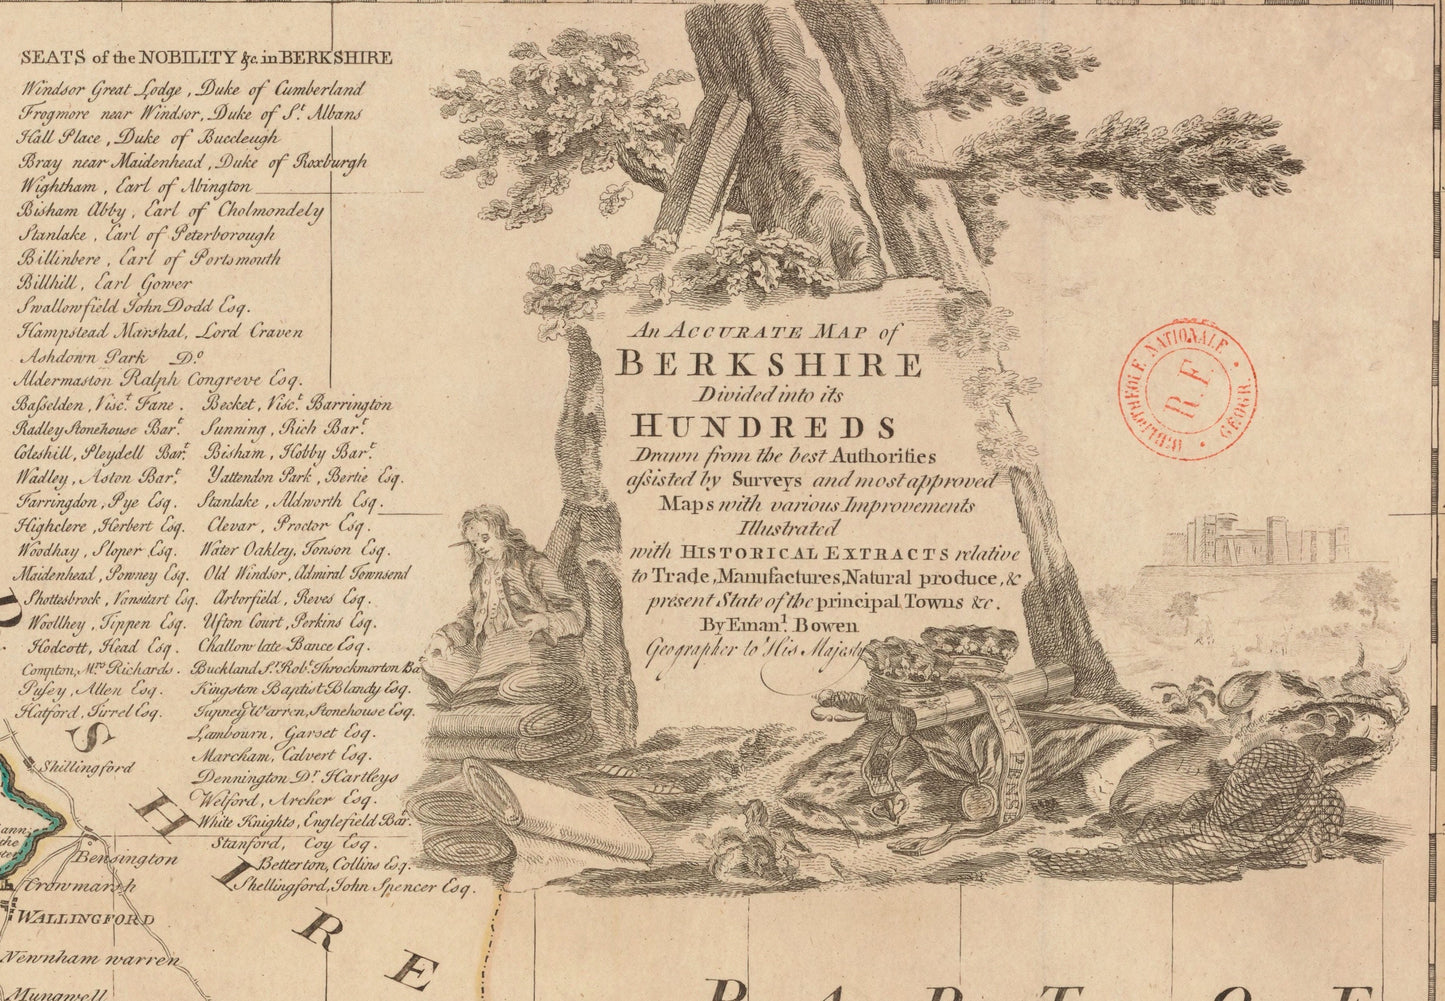 SEATS of the NOBILITY &c. in BERKSHIRE
Windsor Great Lodge, Duke of Cumberland
Frogmore near Windsor, Duke of S.t Albans
Hall Place, Duke of Buccleugh
Bray near Maidenhead, Duke of Roxburgh
Wightham, Earl of Abington
Bisham Abby, Earl of Cholmondely
Stanlake, Earl of Peterborough
Billinbere, Earl of Portsmouth
Billhill, Earl Gower
Swallowfield John Dodd Esq.
Hampstead Marshal, Lord Craven
Ashdown Park D.o
Aldermaston Ralph Congreve Esq.
Baſselden, Visc.t Fane. Becket, Visc.t Barrington
Radley Stonehouse Bar.t Sunning, Rich Bar.t
Coleshill, Pleydell Bar.t Bisham, Hobby Bar.t
Wadley, Aston Bar.t Yattendon Park, Bertie Esq.
Farringdon, Pye Esq. Stanlake, Aldworth Esq.
Highclere, Herbert Esq. Clevar, Proctor Esq.
Woodhay, Sloper Esq. Water Oakley, Tonson Esq.
Maidenhead, Powney Esq. Old Windsor, Admiral Townsend
Shottesbrock, Vansitart Esq. Arborfield, Reves Esq.
Woollhey, Tippen Esq. Ufton Court, Perkins Esq.
Hodcott, Head Esq. Challow late Bance Esq.
Compton, M.rs Richards. Buckland S.r Rob.t Throckmorton Ba
Pusey, Allen Esq. Kingston Baptist Blandy Esq.
Hatford, Tirrel Esq. Tupney Warren, Stonehouse Esq.
Lambourn, Garset Esq.
Marcham, Calvert Esq.
Dennington D.r Hartleys
Welford, Archer Esq.
White Knights, Englefield Bar.
Stanford, Coy Esq.
Betterton, Collins Esq.
Shellingford, John Spencer Esq.
An ACCURATE MAP of
BERKSHIRE
Divided into its
HUNDREDS
Drawn from the best Authorities
aſsisted by Surveys and most approved
Maps with various Improvements
Illustrated
with HISTORICAL EXTRACTS relative
to Trade, Manufactures, Natural produce, &c
present State of the principal Towns &c.
By Eman.l Bowen
Geographer to His Majesty
BIBLIOTHEQUE NATIONALE
GEOGR.
R.F.
SHIRE
Shillingford
Bensington
Crowmarsh
WALLINGFORD
Newnham warren
Mungwell
PART OF